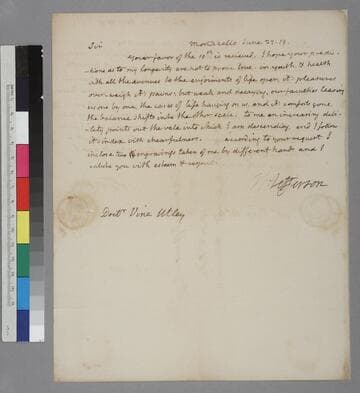 Sir Monticello June 27. 19.
Your favor of the 18th is recieved. I hope your predic-
-tions as to my longevity are not to prove true. in youth & health
with all the avenues to the enjoiments of life open, it's pleasures
overweigh it's pains. but weak and decaying, our faculties leaving
us one by one, the cares of life hanging on us, and it's comforts gone,
the balance shifts into the other scale. to me an increasing debi-
lity points out the vale into which I am descending, and I follow
it's index with chearfulness. according to your request I
inclose two engravings taken of me by different hands and I
salute you with esteem & respect.
Th: Jefferson
Doctr. Vine Utley